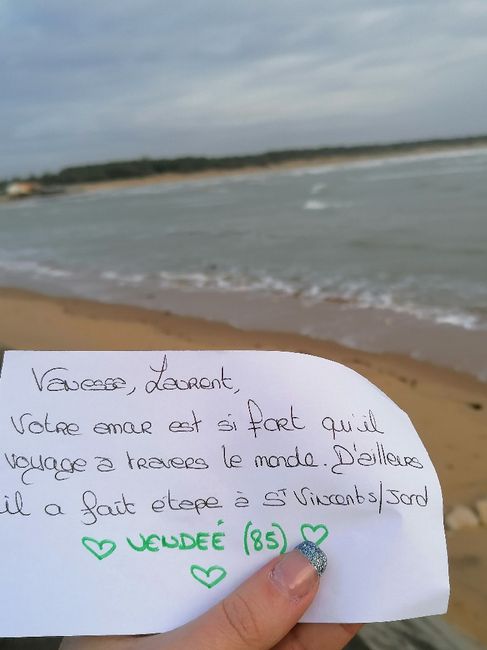 Vanessa, Laurent,
Votre amar est si fort qu'il
voyage à travers le monde. D'ailleurs
il a fait étape à St Vincents/Jard
VENDEÉ (85)